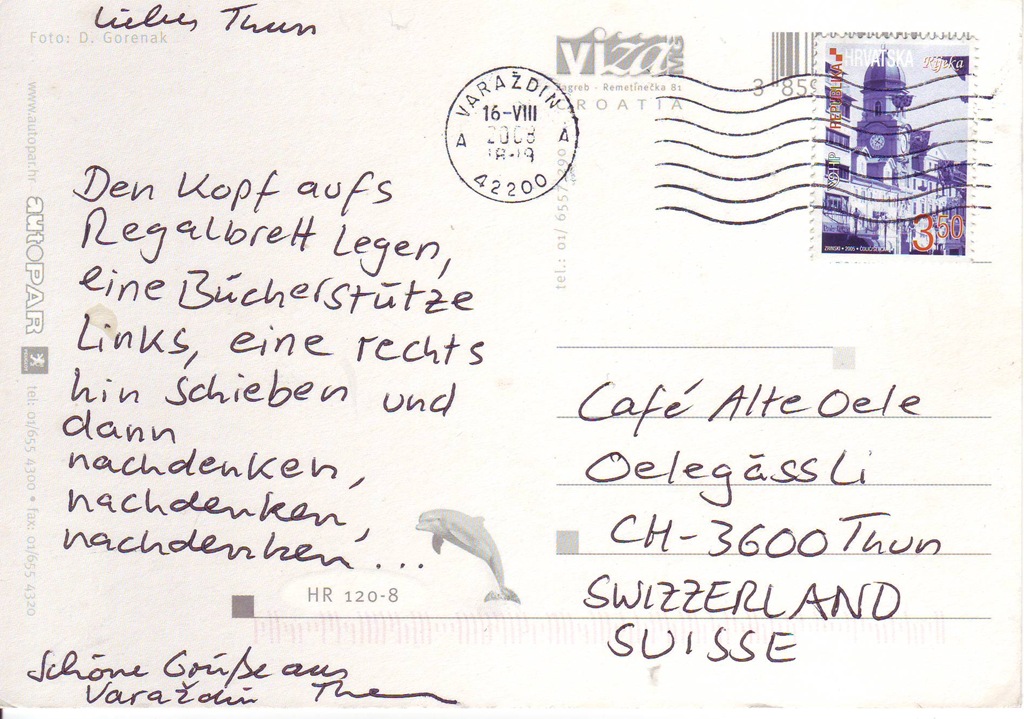 Liebes Thun
Foto: D. Gorenak
www.autopar.hr
autoPAR
PEUGEOT
tel: 01/655 4300 • fax: 01/655 4320
Den Kopf aufs
Regalbrett legen,
eine Bücherstütze
links, eine rechts
hin schieben und
dann
nachdenken,
nachdenken,
nachdenken...
HR 120-8
Schöne Grüße aus
Varaždin
viza MG
Zagreb - Remetinečka 81
CROATIA
tel.: 01/ 6557
3 859
VARAŽDIN
16-VIII
2008
18-19
A A
42200
REPUBLIKA HRVATSKA
Rijeka
HP
3,50
ZRINSKI • 2005 •
Café Alte Oele
Oelegässli
CH-3600 Thun
SWIZZERLAND
SUISSE